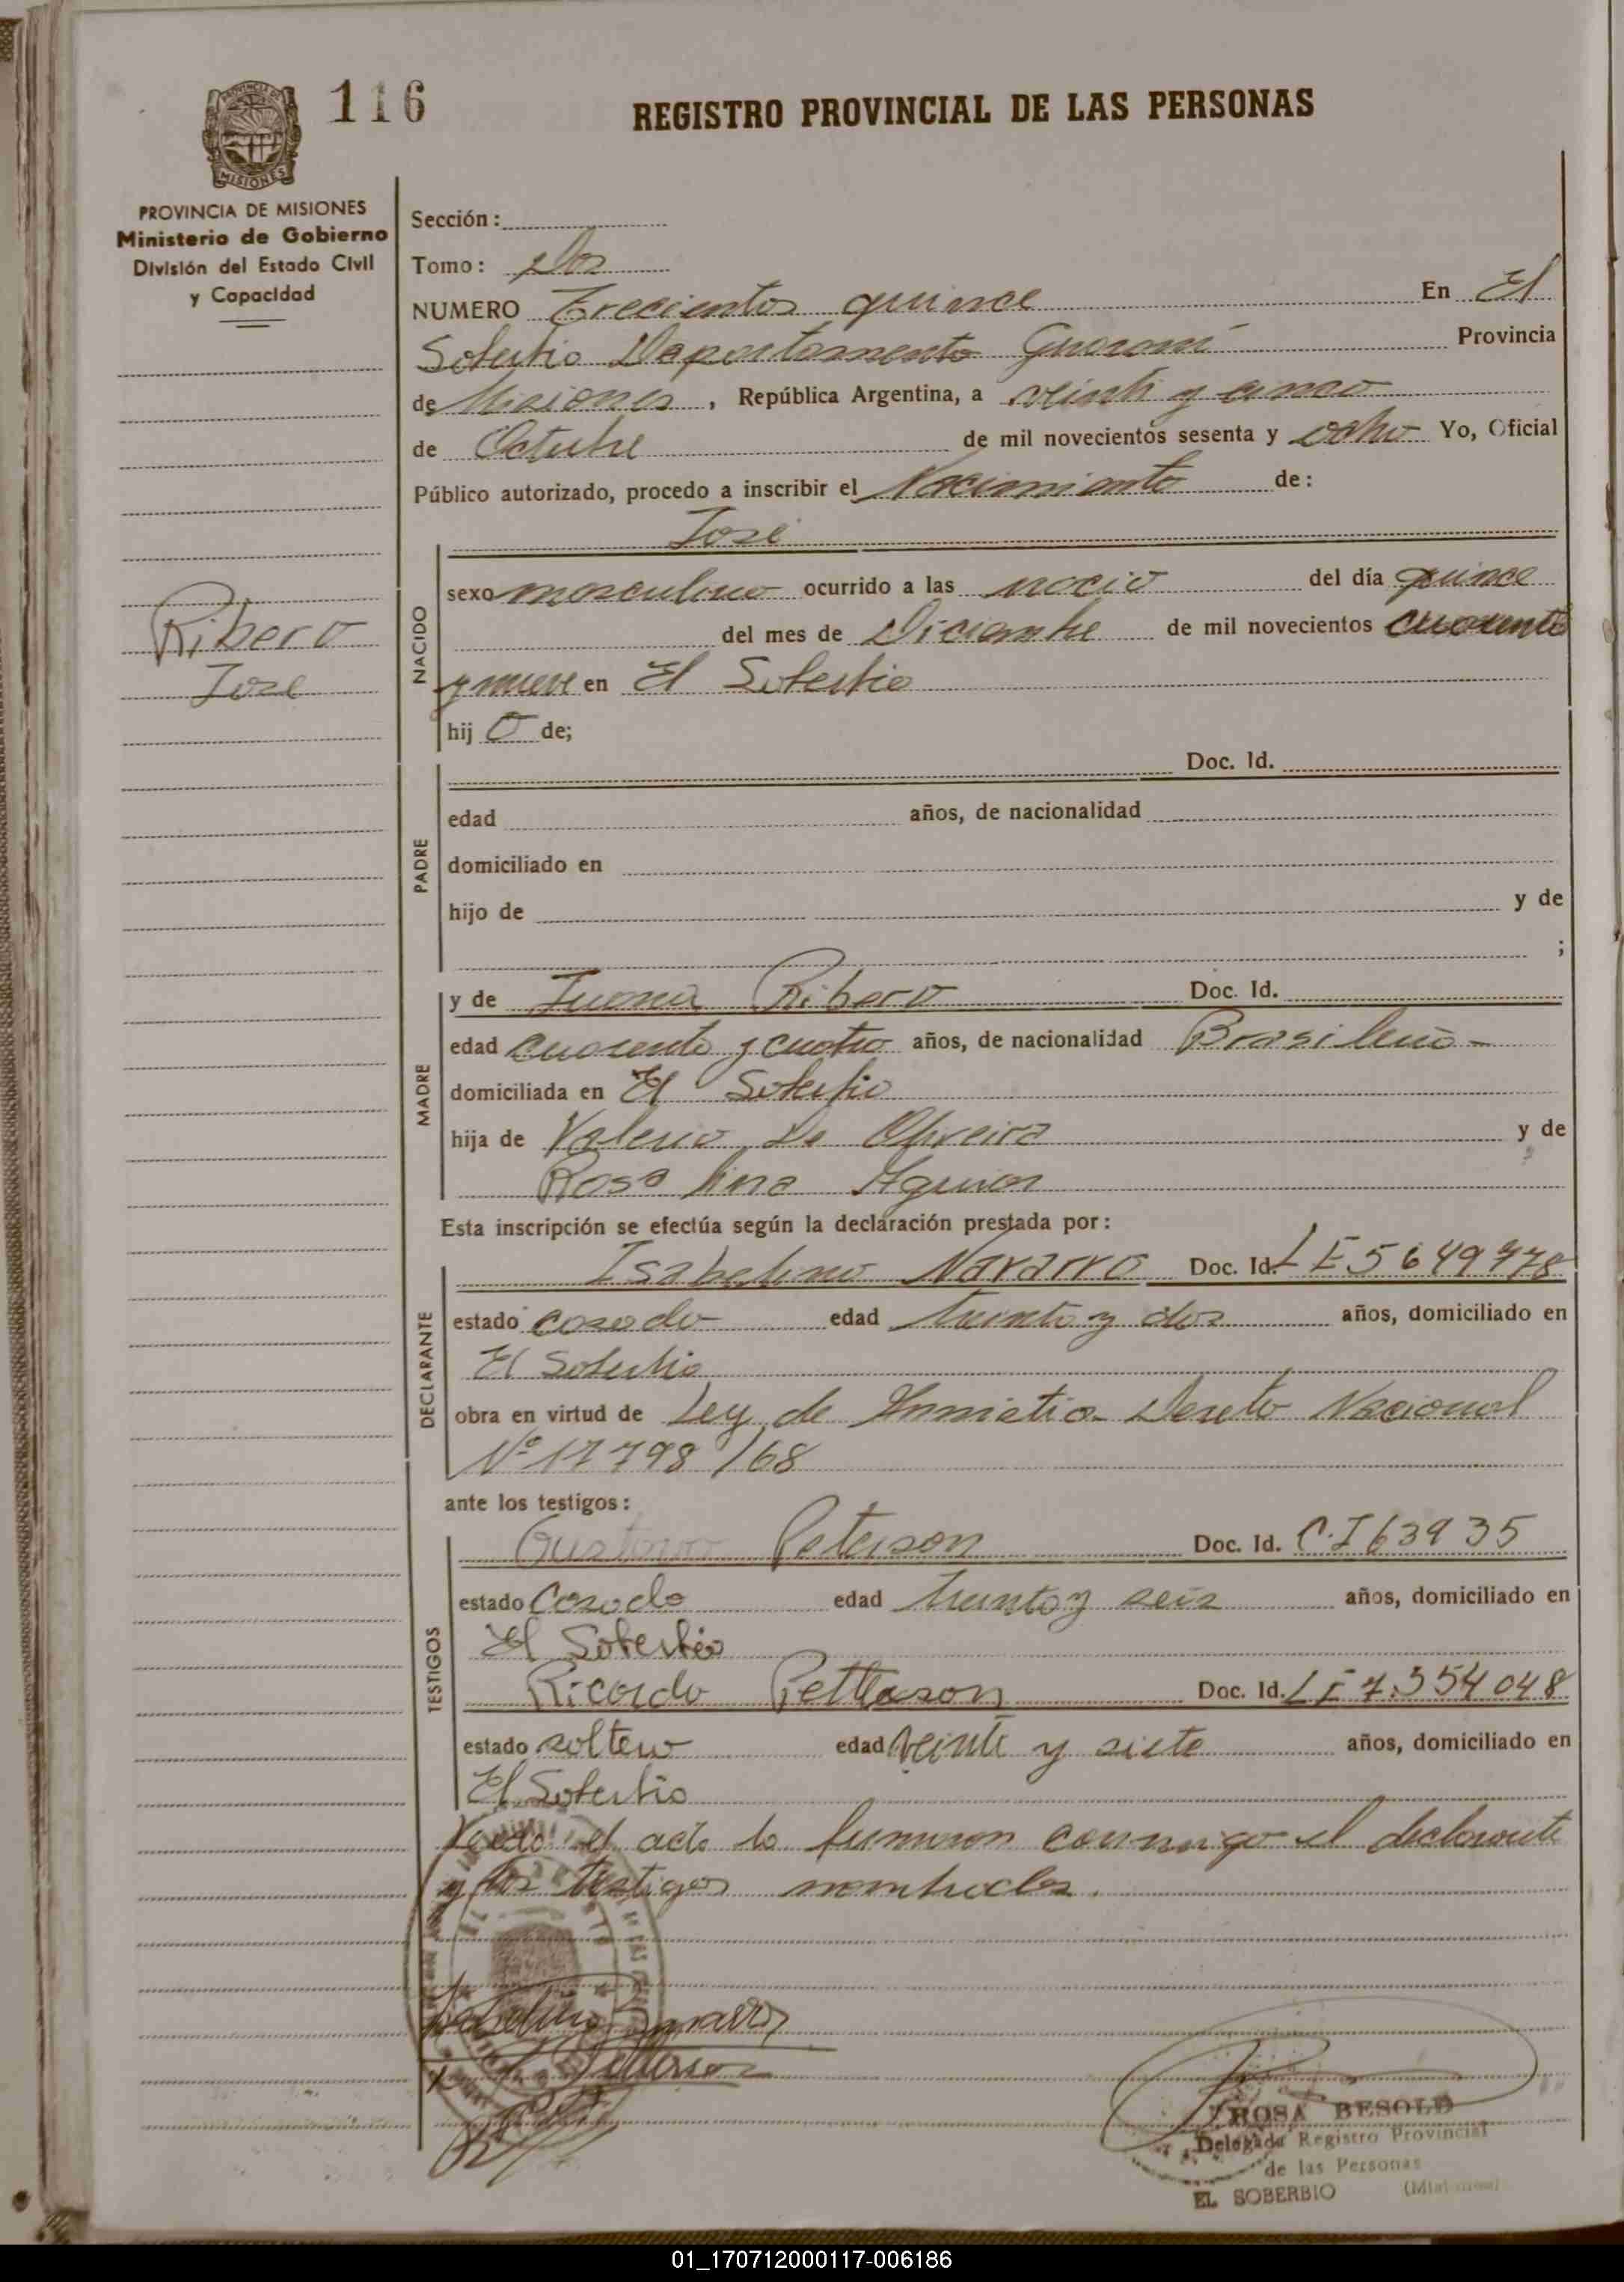 116
REGISTRO PROVINCIAL DE LAS PERSONAS
PROVINCIA DE
MISIONES
PROVINCIA DE MISIONES
Ministerio de Gobierno
División del Estado Civil
y Capacidad
Sección:
Tomo: Dos
NUMERO Trecientos quince En El
Soberbio Departamento Guaraní Provincia
de Misiones, República Argentina, a veinti y cinco
de Octubre de mil novecientos sesenta y ocho Yo, Oficial
Público autorizado, procedo a inscribir el Nacimiento de:
José
NACIDO
sexo masculino ocurrido a las nació del día quince
Ribero
José
del mes de Diciembre de mil novecientos cuarenta
y nueve en El Soberbio
hij o de;
PADRE
Doc. Id.
edad años, de nacionalidad
domiciliado en
hijo de y de
;
MADRE
y de Juana Ribero Doc. Id.
edad cuarenta y cuatro años, de nacionalidad Brasileña -
domiciliada en El Soberbio
hija de Valerio De Oliveira y de
Rosalina Aguiar
Esta inscripción se efectúa según la declaración prestada por:
DECLARANTE
Isabelino Navarro Doc. Id. LE 5649978
estado casado edad treinta y dos años, domiciliado en
El Soberbio
obra en virtud de Ley de Amnistia Decreto Nacional
Nº 17798/68
ante los testigos:
TESTIGOS
Gustavo Peterson Doc. Id. C.I 63935
estado Casado edad treinta y seis años, domiciliado en
El Soberbio
Ricardo Petterson Doc. Id. LE 7.354048
estado soltero edad veinte y siete años, domiciliado en
El Soberbio
el acta la firmaron conmigo el declarante
y los testigos nombrados.
ROSA BESOLD
Delegada Registro Provincial
de las Personas
EL SOBERBIO (Misiones)
01_170712000117-006186